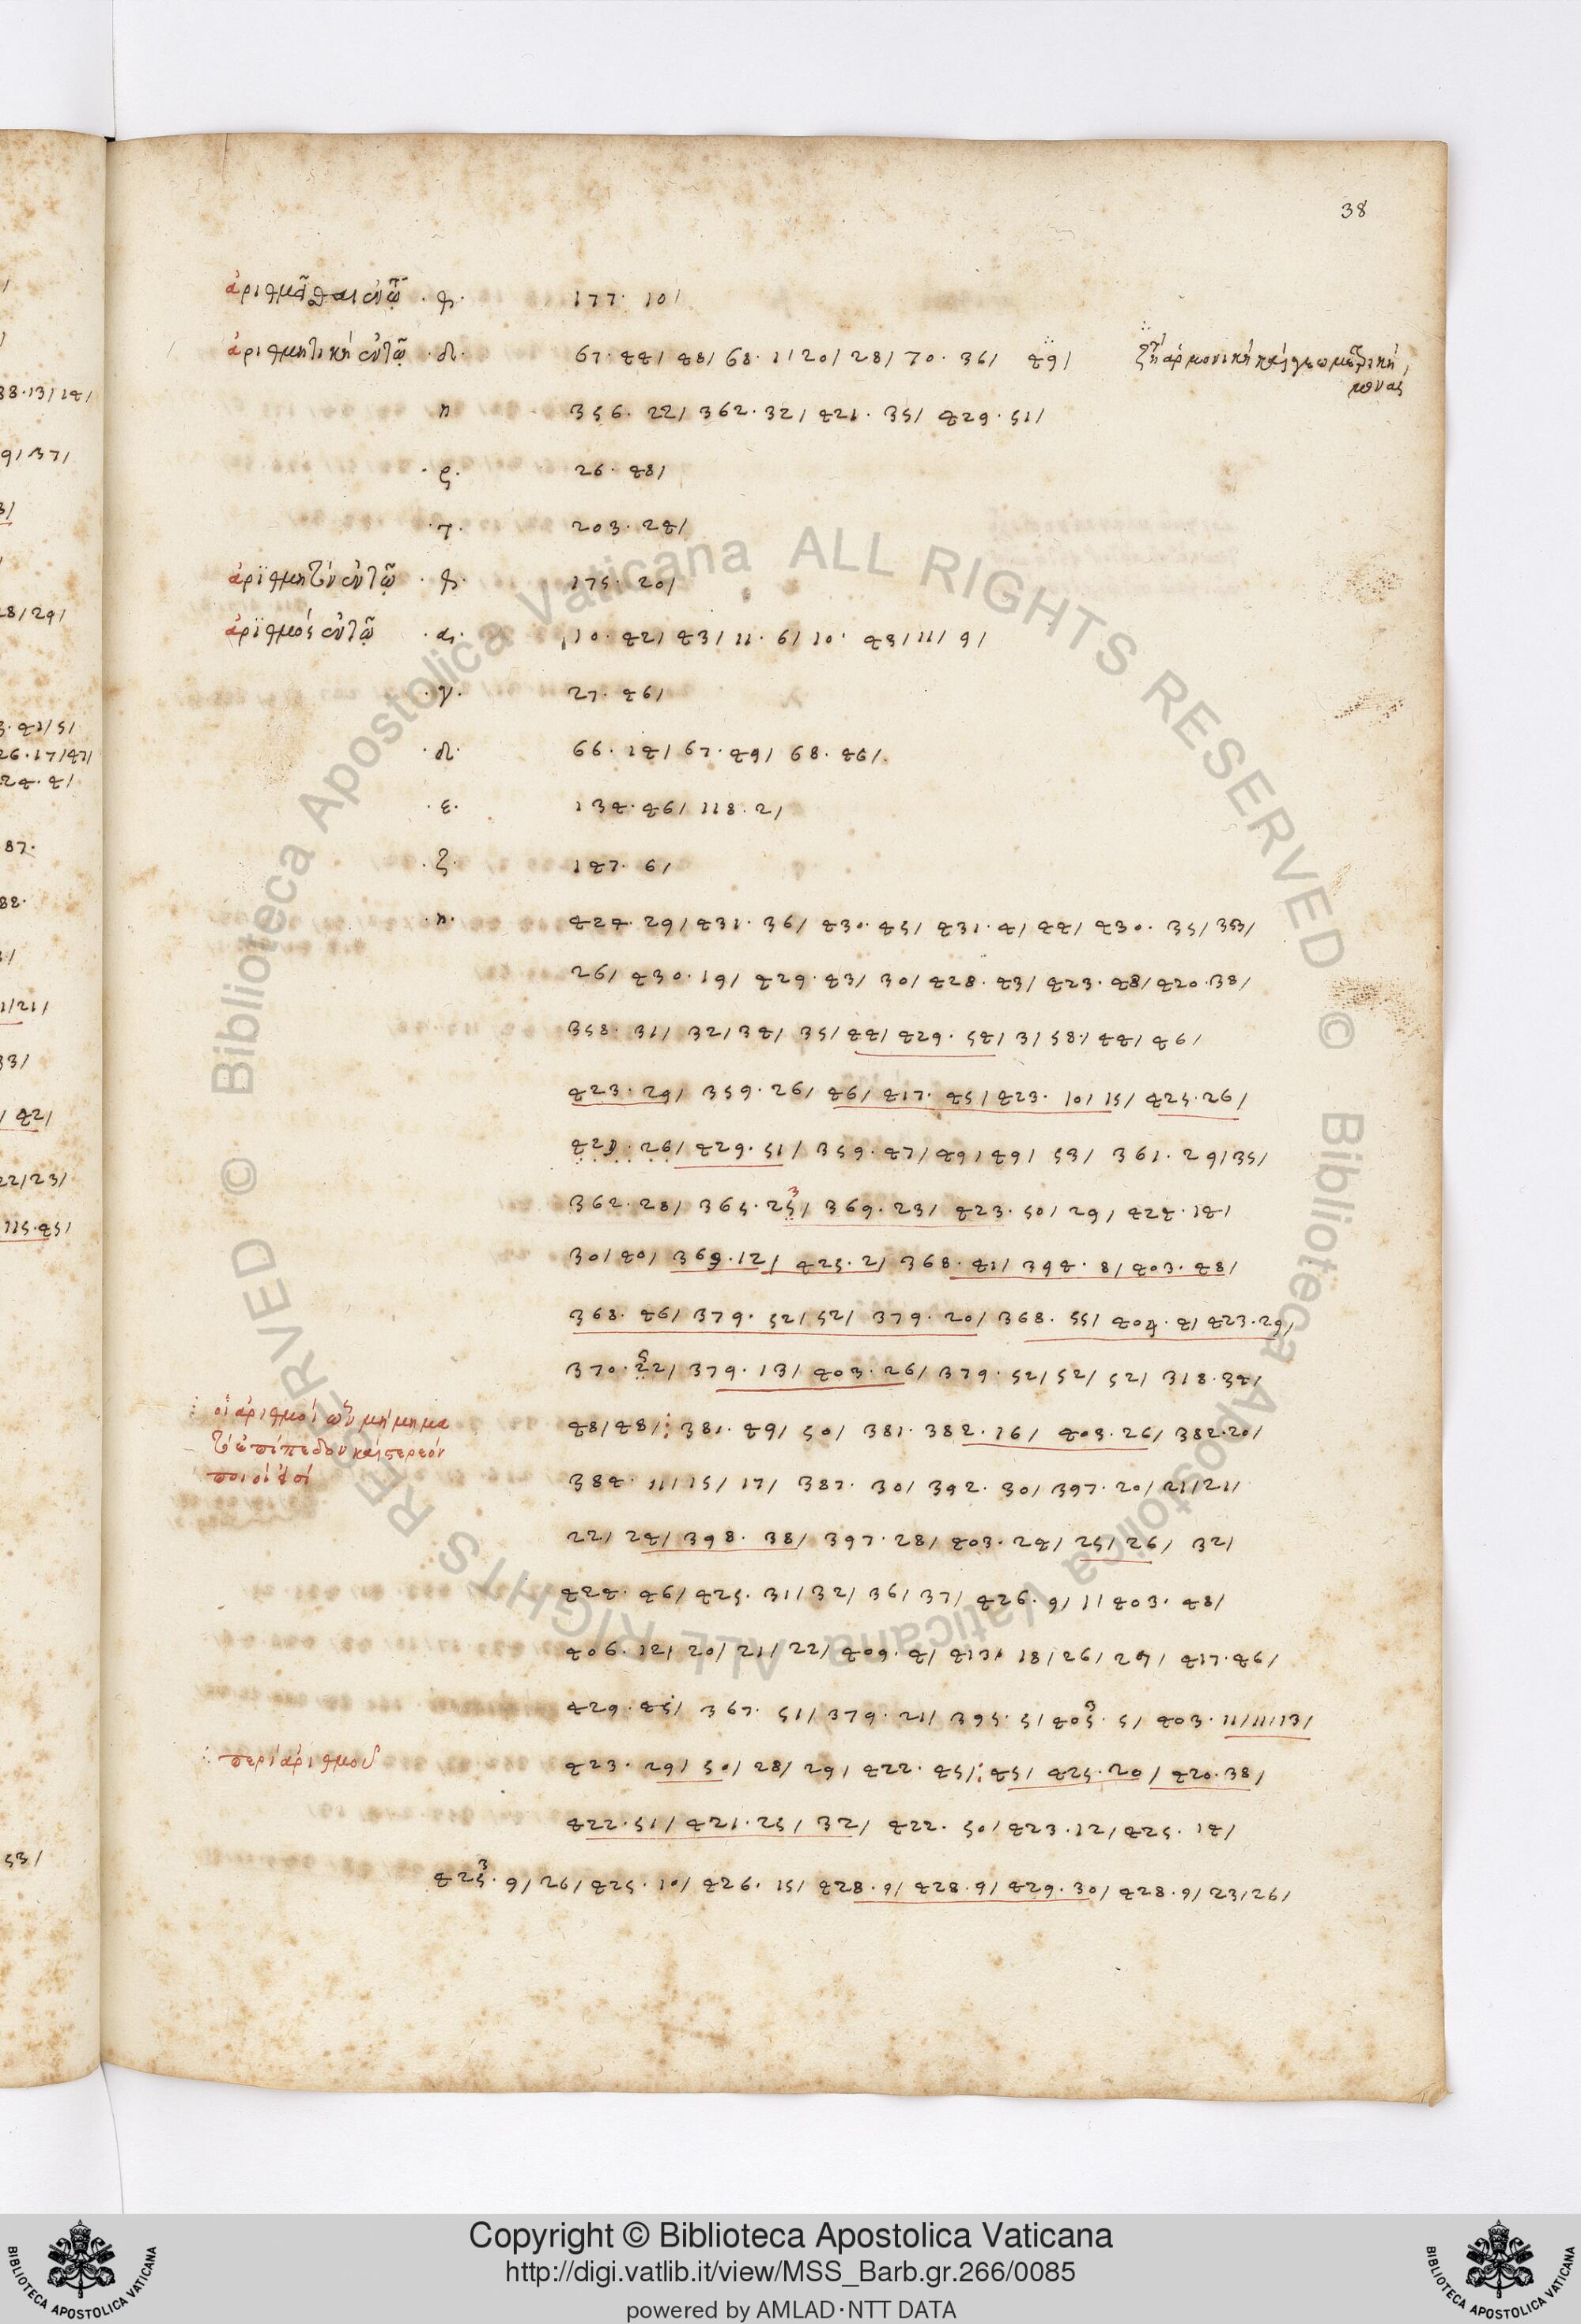 38
ἀριθμεῖσθαι ἐν τῷ · φ · 177 · 10 /
ἀριθμητικὴ ἐν τῷ · δ · 67 · 44 / 48 / 68 · 1 / 20 / 28 / 70 · 36 / 49 / ζήτει ἁρμονικὴ καὶ γεωμετρικὴ
η 356 · 22 / 362 · 32 / 421 · 35 / 429 · 51 /
· ς · 26 · 48 /
· τ · 203 · 24 /
ἀριθμητὸν ἐν τῷ · φ · 175 · 20 /
ἀριθμός ἐν τῷ · α · 10 · 42 / 43 / 11 · 6 / 10 · 43 / 11 / 9 /
· γ · 27 · 46 /
· δ · 66 · 14 / 67 · 49 / 68 · 46 /
· ε · 134 · 46 / 118 · 2 /
· ζ · 147 · 6 /
· η · 424 · 29 / 431 · 36 / 430 · 45 / 431 · 4 / 44 / 430 · 35 / 353 /
26 / 430 · 19 / 429 · 43 / 30 / 428 · 43 / 423 · 48 / 420 · 38 /
358 · 31 / 32 / 34 / 35 / 44 / 429 · 54 / 3 / 58 · / 44 / 46 /
423 · 29 / 359 · 26 / 46 / 417 · 45 / 423 · 10 / 15 / 425 · 26 /
· 26 / 429 · 51 / 359 · 47 / 49 / 49 / 53 / 361 · 29 / 35 /
362 · 28 / 365 · 25 / 369 · 23 / 423 · 50 / 29 / 424 · 14 /
30 / 40 / 369 · 12 / 425 · 2 / 368 · 41 / 394 · 8 / 403 · 48 /
368 · 46 / 379 · 52 / 52 / 379 · 20 / 368 · 55 / 404 · 4 / 423 · 29 /
370 · 22 / 379 · 13 / 403 · 26 / 379 · 52 / 52 / 52 / 318 · 34 /
οἱ ἀριθμοὶ ὧν μήκημα 48 / 48 / : 381 · 49 / 50 / 381 · 382 · 16 / 403 · 26 / 382 · 20 /
ἐπίπεδον καὶ στερεόν
384 · 11 / 15 / 17 / 387 · 30 / 392 · 30 / 397 · 20 / 21 / 21 /
22 / 24 / 398 · 38 / 397 · 28 / 403 · 24 / 25 / 26 / 32 /
424 · 46 / 425 · 31 / 32 / 36 / 37 / 426 · 9 / 11 403 · 48 /
406 · 12 / 20 / 21 / 22 / 409 · 4 / 413 · 18 / 26 / 27 / 417 · 46 /
429 · 45 / 367 · 51 / 379 · 21 / 395 · 5 / 405 · 5 / 403 · 11 / 11 / 13 /
περὶ ἀριθμοῦ 423 · 29 / 50 / 28 / 29 / 422 · 45 / : 45 / 425 · 20 / 420 · 38 /
422 · 51 / 421 · 25 / 32 / 422 · 50 / 423 · 12 / 425 · 14 /
425 · 9 / 26 / 425 · 10 / 426 · 15 / 428 · 9 / 428 · 9 / 429 · 30 / 428 · 9 / 23 / 26 /
Copyright © Biblioteca Apostolica Vaticana
http://digi.vatlib.it/view/MSS_Barb.gr.266/0085
powered by AMLAD·NTT DATA